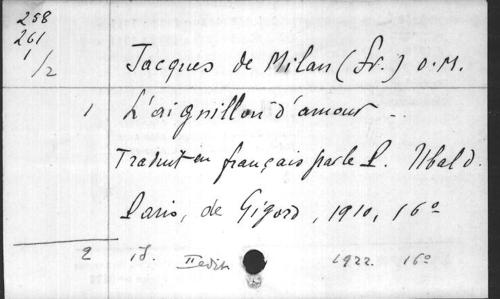 258
261
1/2
Jacques de Milan (fr.) O.M.
1 L'aiguillon d'amour ..
Traduit en français par le P. Ubald.
Paris, de Gigord, 1910, 16º
2 id. II edit. 1922. 16º